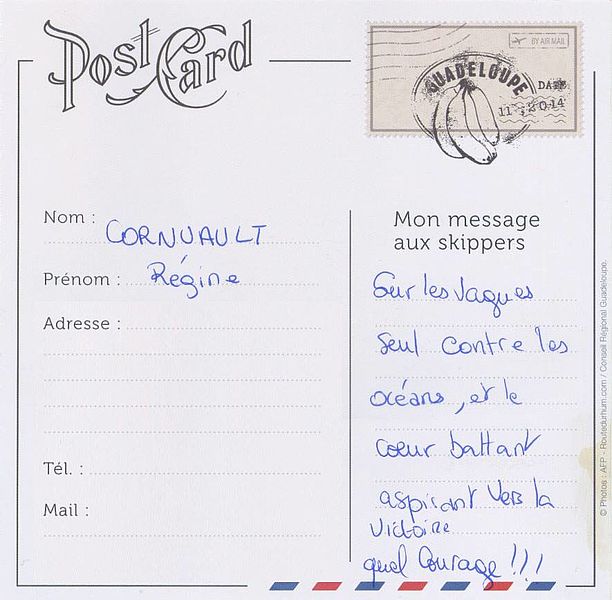 Post Card
BY AIR MAIL
GUADELOUPE
DATE
11, 2014
Nom : CORNUAULT
Prénom : Régine
Adresse :
Tél. :
Mail :
Mon message
aux skippers
Sur les vagues
seul contre les
océans, et le
coeur battant
aspirant vers la
victoire
quel courage !!!
© Photos : AFP - Routedurhum.com / Conseil Régional Guadeloupe.